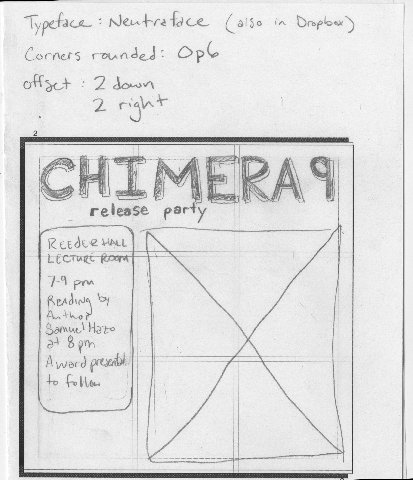 Typeface: Neutraface (also in Dropbox)
Corners rounded: 0p6
offset: 2 down
2 right
2
CHIMERA 9
release party
REEDER HALL
LECTURE ROOM
7-9 pm
Reading by
Author
Samuel Hazo
at 8 pm
Award presental
to follow